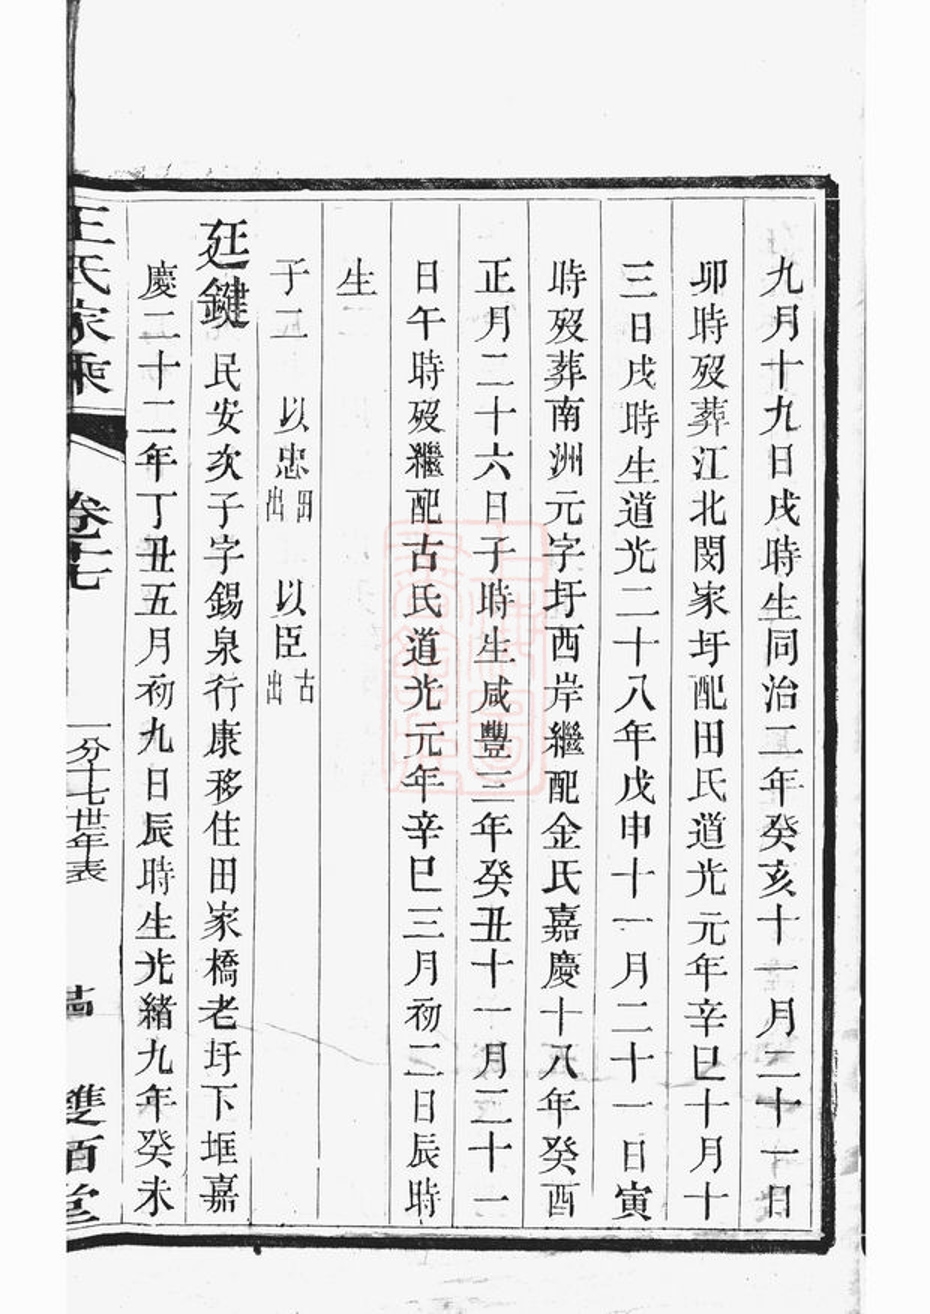 九月十九日戌時生同治二年癸亥十一月二十一日
卯時歿葬江北閔家圩配田氏道光元年辛巳十月十
三日戌時生道光二十八年戊申十一月二十一日寅
時歿葬南洲元字圩西岸繼配金氏嘉慶十八年癸酉
正月二十六日子時生咸豐三年癸丑十一月二十一
日午時歿繼配古氏道光元年辛巳三月初二日辰時
生
子二 以忠田出 以臣古出
廷鍵 民安次子字錫泉行康移住田家橋老圩下堐嘉
慶二十二年丁丑五月初九日辰時生光緒九年癸未
王氏家乘 卷七 一分十七世年表 雙栢堂